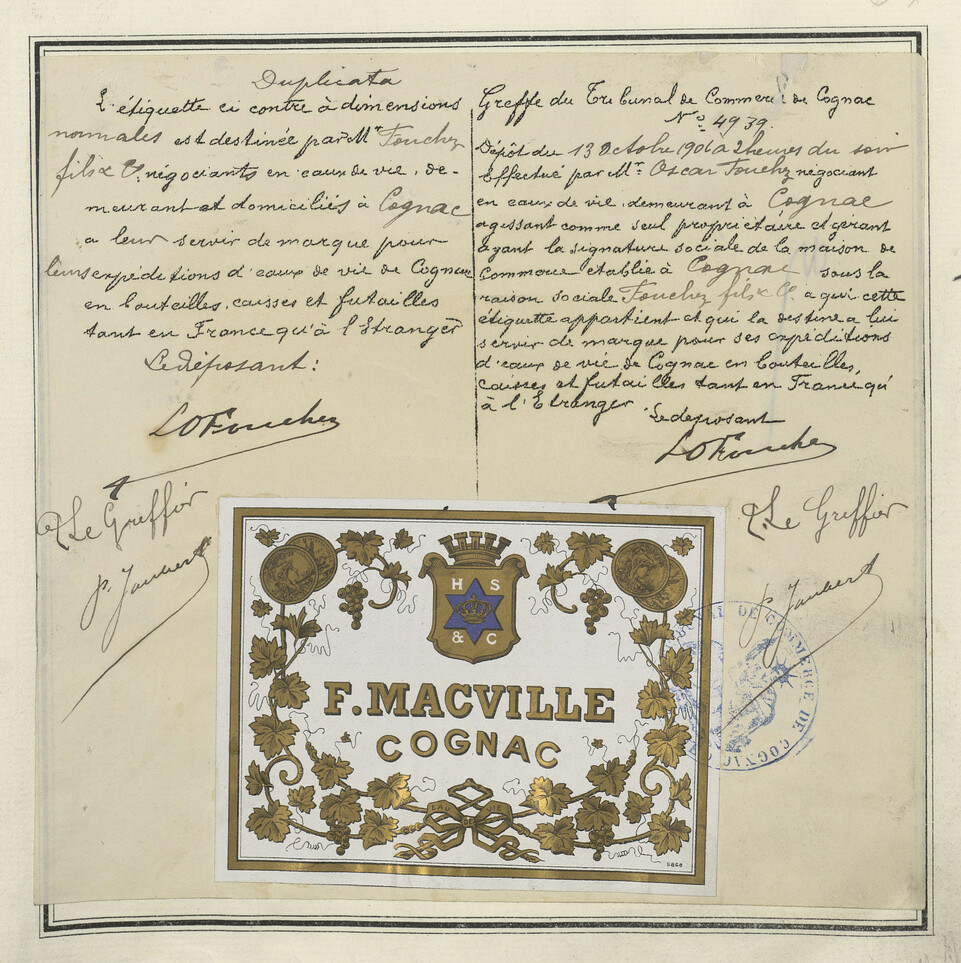 Duplicata
L'étiquette ci contre à dimensions
normales est destinée par Mr Fouchez
fils & Co. négociants en eaux de vie, de-
meurant et domiciliés à Cognac
a leur servir de marque pour
leurs expéditions d'eaux de vie de Cognac
en bouteilles, caisses et futailles
tant en France qu'à l'Etranger
Le déposant:
LOFouchez
Le Greffier
P. Jaubert
Greffe du Tribunal de Commerce de Cognac
No. 4939.
Dépôt du 13 Octobre 1906 a 2 heures du soir
Effectué par Mr. Oscar Fouchez négociant
en eaux de vie, demeurant à Cognac
agissant comme seul propriétaire et gérant
ayant la signature sociale de la maison de
Commerce établie à Cognac sous la
raison sociale Fouchez fils & Co. a qui cette
étiquette appartient et qui la destine a lui
servir de marque pour ses expéditions
d'eaux de vie de Cognac en bouteilles,
caisses et futailles tant en France qu'
à l'Etranger
Le deposant
LOFouchez
Le Greffier
P. Jaubert
H S
& C
F. MACVILLE
COGNAC
EAU DE VIE
TRIBUNAL DE COMMERCE DE COGNAC